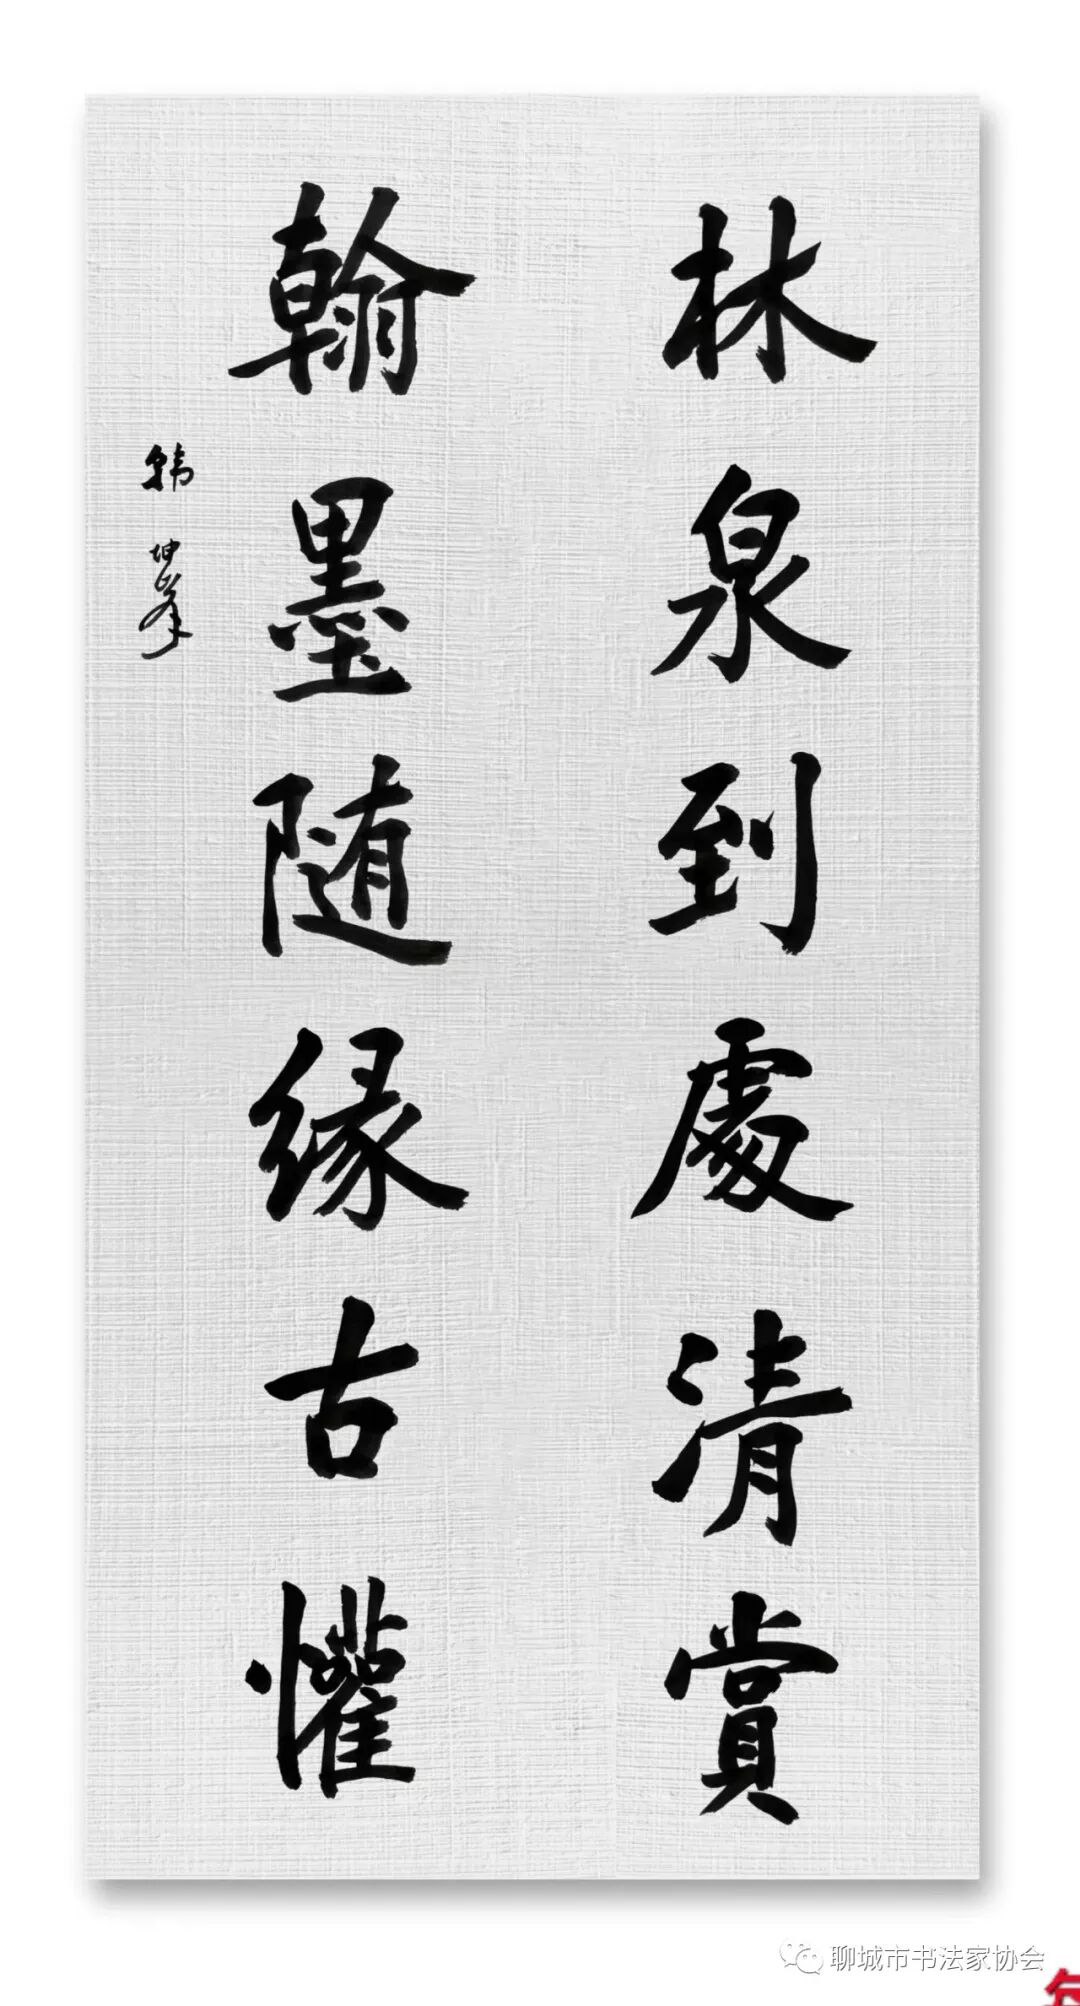 林泉到處清賞
翰墨随缘古懽
韩坤峯
聊城市书法家协会